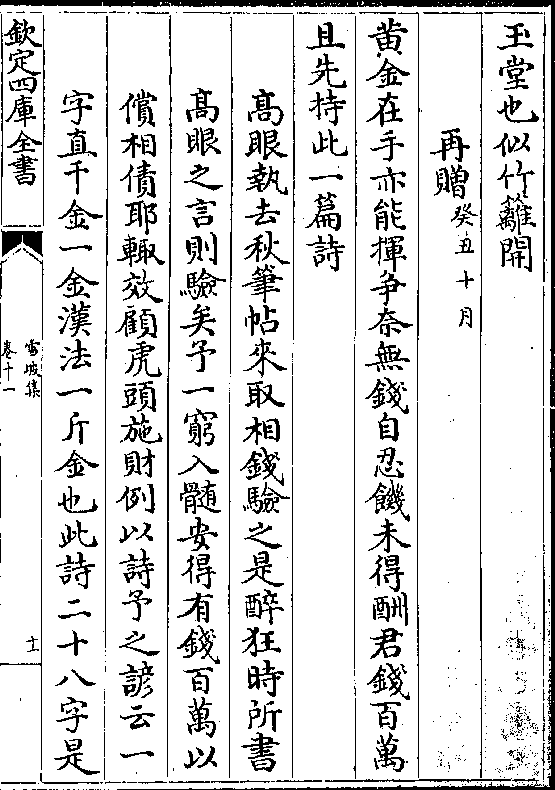 玉堂也似竹籬開
再贈癸丑十月
黄金在手亦能揮争奈無錢自忍饑未得酬君錢百萬
且先持此一篇詩
髙眼執去秋筆帖來取相錢驗之是醉狂時所書
髙眼之言則驗矣予一窮入髓安得有錢百萬以
償相債耶輙效顧虎頭施財例以詩予之諺云一
字直千金一金漢法一斤金也此詩二十八字是
欽定四庫全書
雪坡集
卷十一
十一